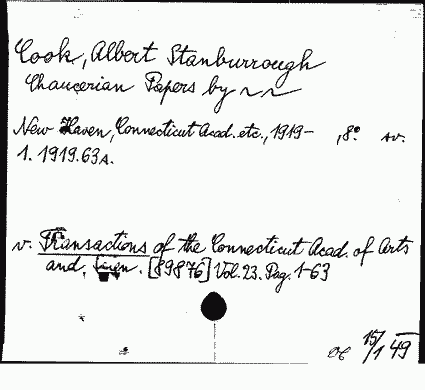 Cook, Albert Stanburrough
Chaucerian Papers by ~~
New Haven, Connecticut Acad. etc., 1919- , 8°. sv.
1. 1919. 63 A.
v. Transactions of the Connecticut Acad. of Arts
and. [89876] Vol. 23. Pag. 1-63
15/1 49